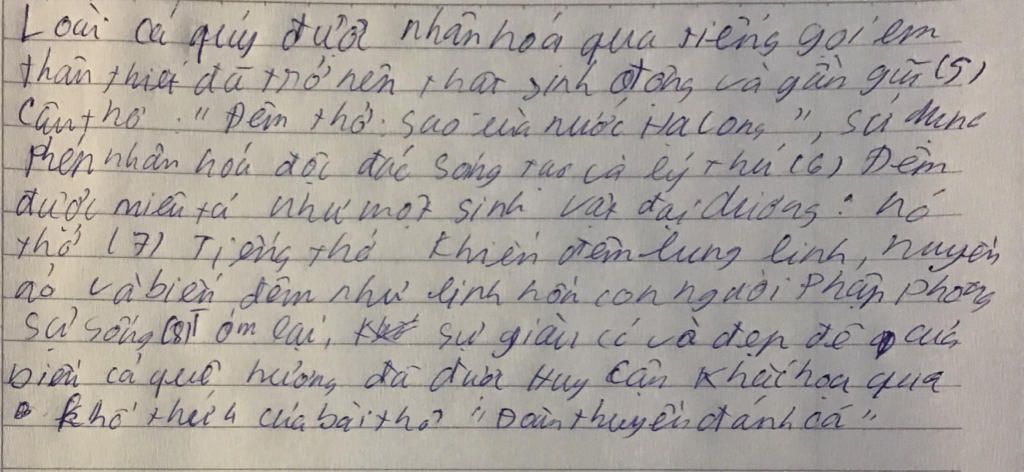 Loài cá quý được nhân hóa qua tiếng gọi em
thân thiết đã trở nên thật sinh động và gần gũi (5)
Câu thơ: "Đêm thở: sao lùa nước Hạ Long", sử dụng
phép nhân hóa độc đác sáng tạo và lý thú (6) Đêm
được miêu tả như một sinh vật đại dương: nó
thở (7) Tiếng thở khiến đêm lung linh, huyền
ảo và biển đêm như linh hồn con người Phập phồng
sự sống (8) Tóm lại, sự giàu có và đẹp đẽ của
biển cả quê hương đã được Huy Cận khắc họa qua
khổ thứ 4 của bài thơ "Đoàn thuyền đánh cá"